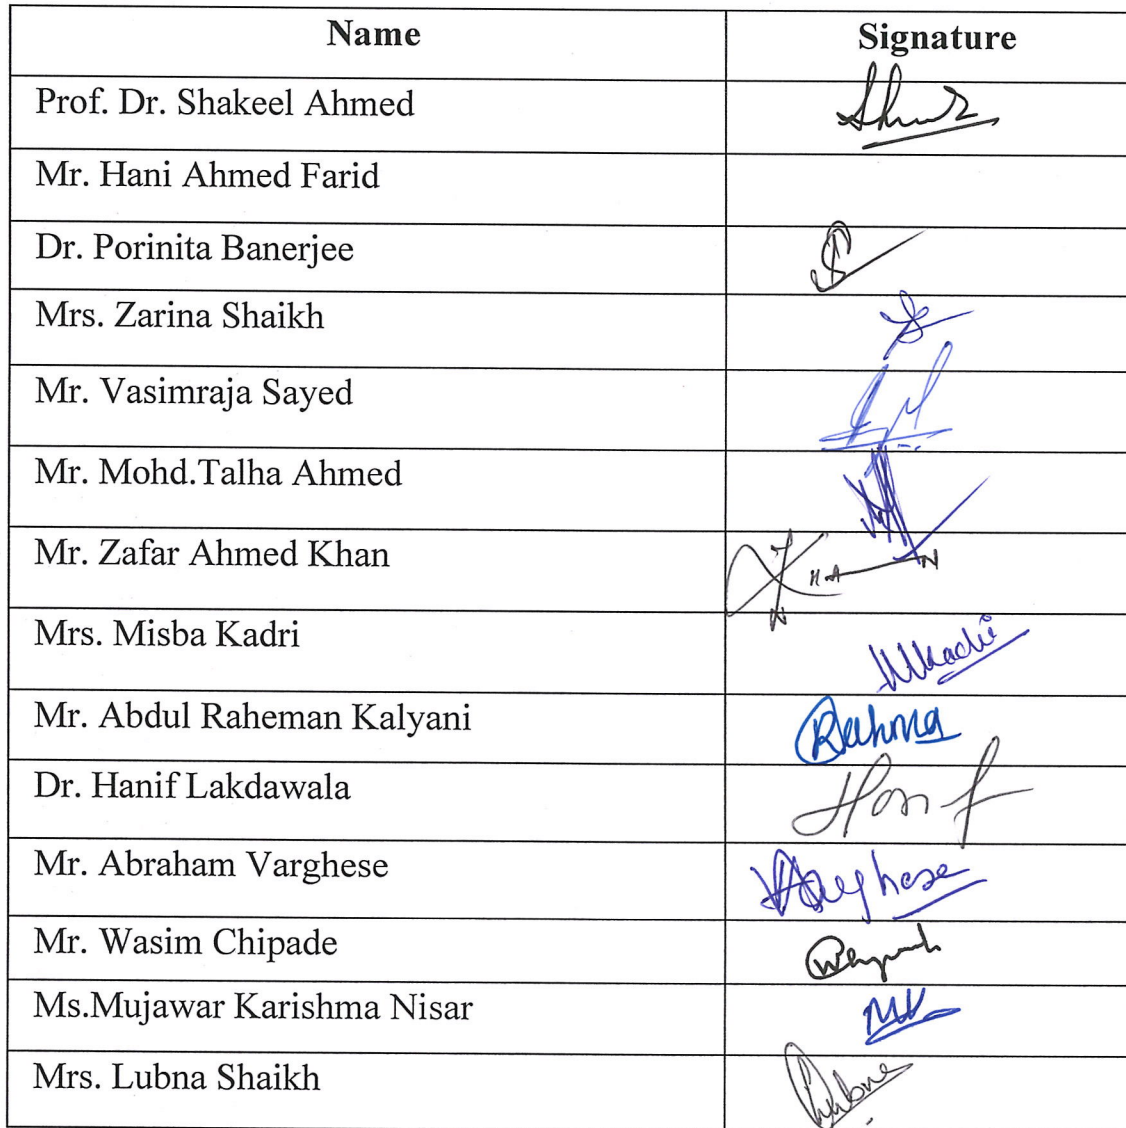 Name Signature
Prof. Dr. Shakeel Ahmed
Mr. Hani Ahmed Farid
Dr. Porinita Banerjee
Mrs. Zarina Shaikh
Mr. Vasimraja Sayed
Mr. Mohd.Talha Ahmed
Mr. Zafar Ahmed Khan
Mrs. Misba Kadri
Mr. Abdul Raheman Kalyani
Dr. Hanif Lakdawala Hanif
Mr. Abraham Varghese Varghese
Mr. Wasim Chipade
Ms.Mujawar Karishma Nisar MK
Mrs. Lubna Shaikh Lubna